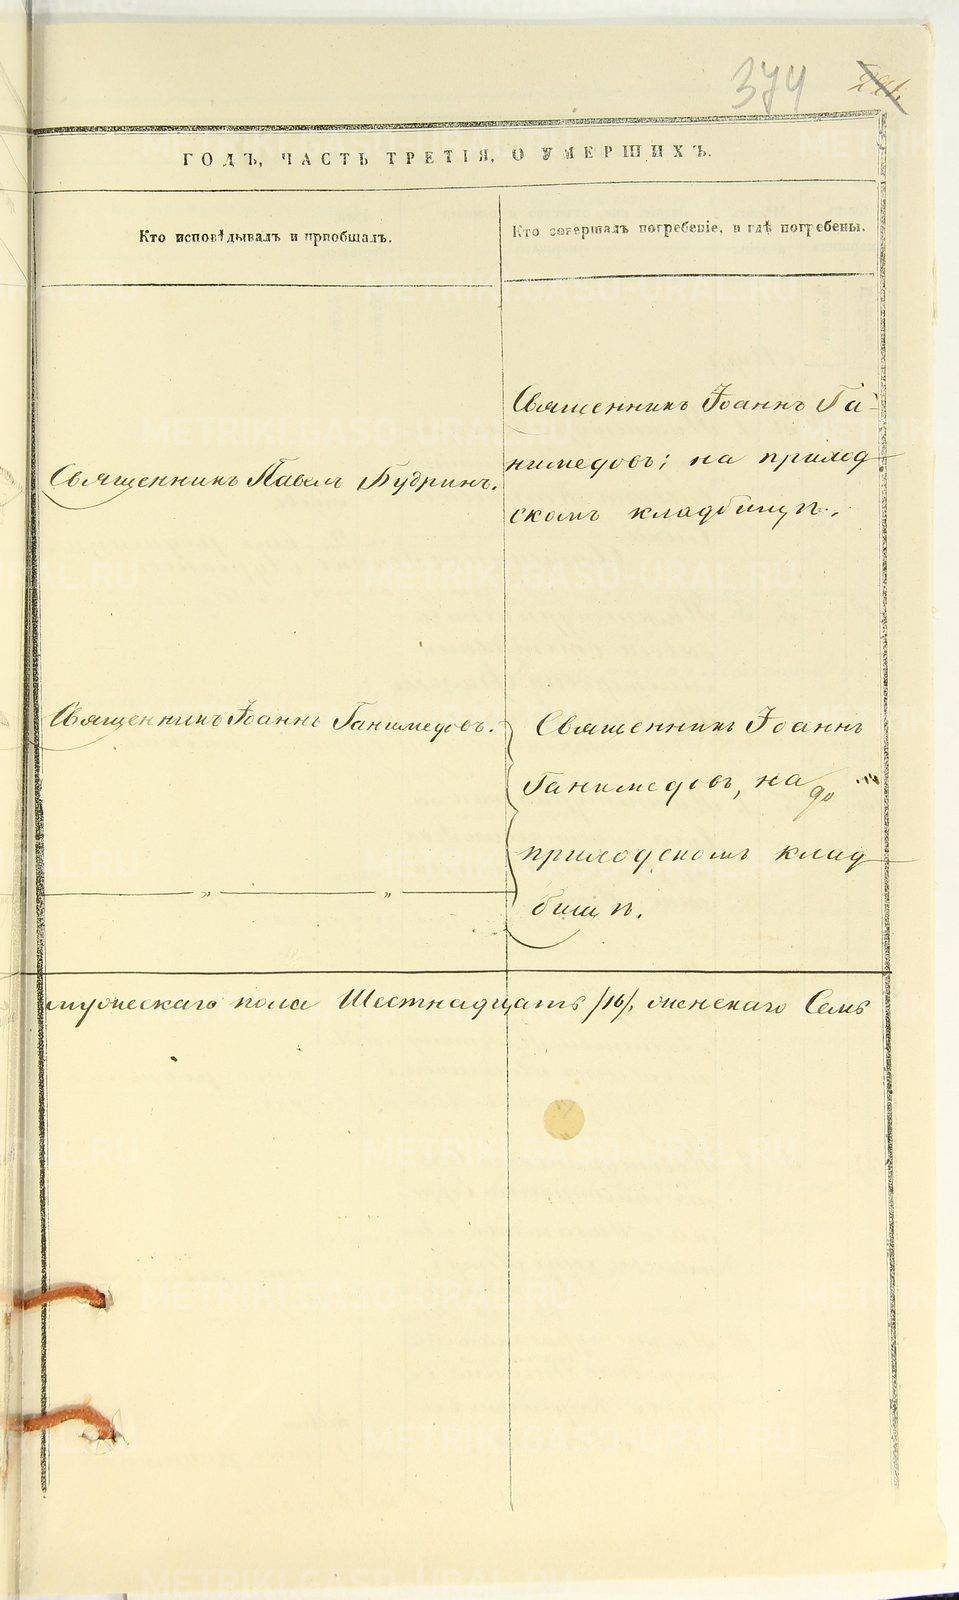 374
ГОДЪ, ЧАСТЬ ТРЕТІЯ, О УМЕРШИХЪ.
Кто исповѣдывалъ и пріобщалъ.
Кто совершалъ погребеніе, и гдѣ погребены.
Священникъ Павелъ Будринъ.
Священникъ Іоаннъ Га-
нимедовъ; на приход
скомъ кладбищѣ.
Священникъ Іоаннъ Ганимедовъ.
Священникъ Іоаннъ
Ганимедовъ, на
приходскомъ клад
бищѣ.
мужескаго пола Шестнадцать /16/, женскаго Семь
METRIKI.GASO-URAL.RU